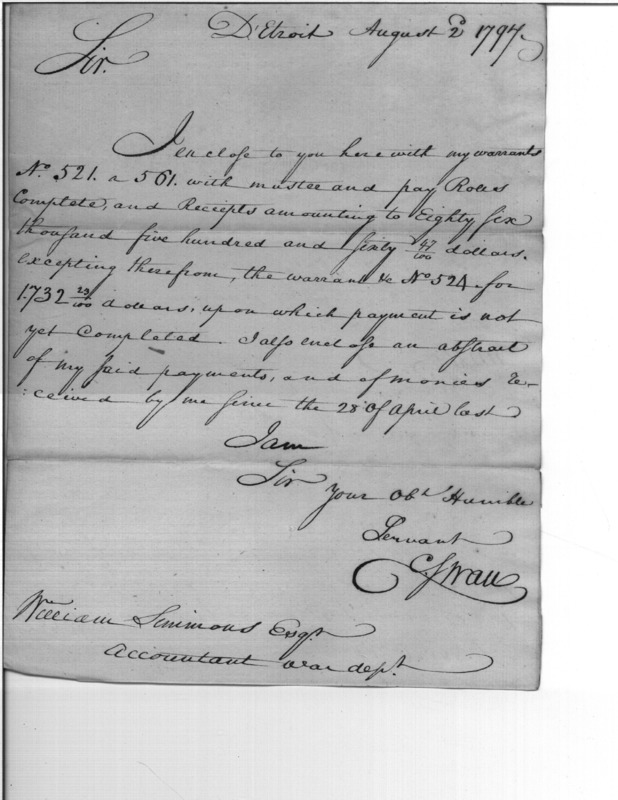 D'Etroit August 2d 1797.
Sir.
I enclose to you here with my warrants
No. 521. a 561. with muster and pay Roles
Complete, and Reciepts amounting to Eighty six
thousand five hundred and sixty 47/100 dollars.
excepting therefrom, the warrant &c No. 524. for
1.732 29/100 dollars; upon which payment is not
yet Completed. I also enclose an abstract
of my said payments, and of monies Re-
:ceived by me since the 28 of April last
I am
Sir
Your Obt Humble
Servant
C. Swan
William Simmons Esqr.
Accountant war dept.